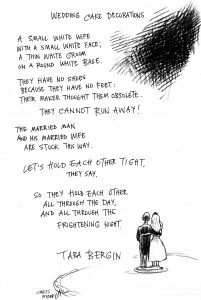 WEDDING CAKE DECORATIONS
A SMALL WHITE WIFE
WITH A SMALL WHITE FACE;
A THIN WHITE GROOM
ON A ROUND WHITE BASE.
THEY HAVE NO SHOES
BECAUSE THEY HAVE NO FEET:
THEIR MAKER THOUGHT THEM OBSOLETE.
THEY CANNOT RUN AWAY!
THE MARRIED MAN
AND HIS MARRIED WIFE
ARE STUCK THIS WAY.
LET'S HOLD EACH OTHER TIGHT,
THEY SAY,
SO THEY HOLD EACH OTHER
ALL THROUGH THE DAY,
AND ALL THROUGH THE
FRIGHTENING NIGHT.
TARA BERGIN
CHRIS